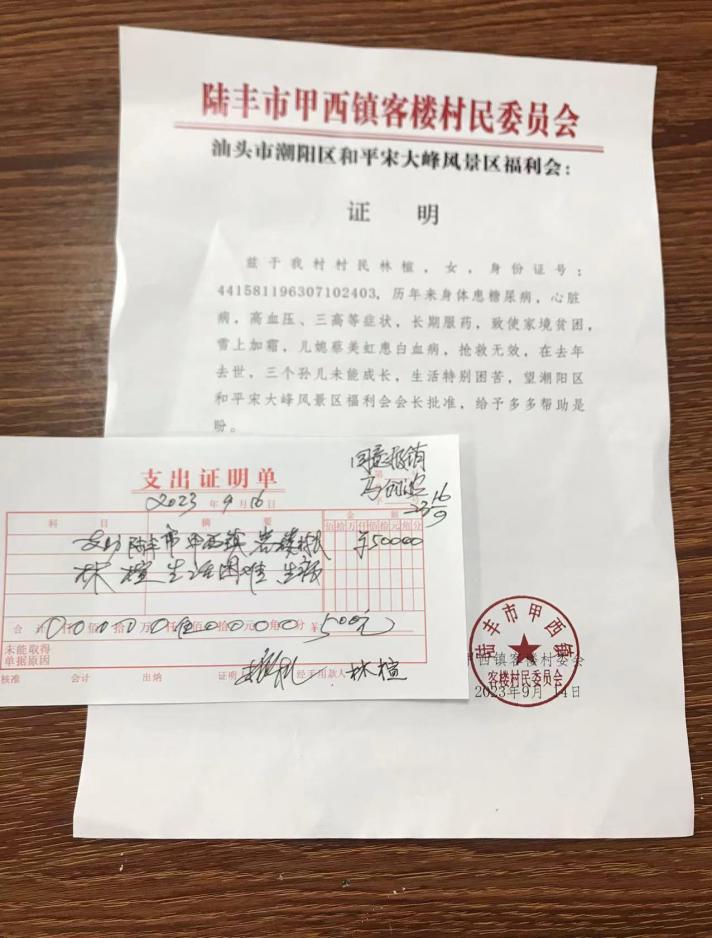 陆丰市甲西镇客楼村民委员会
汕头市潮阳区和平宋大峰风景区福利会：
证 明
兹于我村村民林楦，女，身份证号：
441581196307102403，历年来身体患糖尿病，心脏
病，高血压、三高等症状，长期服药，致使家境贫困，
雪上加霜，儿媳蔡美虹患白血病，抢救无效，在去年
去世，三个孙儿未能成长，生活特别困苦，望潮阳区
和平宋大峰风景区福利会会长批准，给予多多帮助是
盼。
甲西镇客楼村委会
2023年9月14日
陆丰市甲西镇
客楼村民委员会
支出证明单
2023年9月16日
同意报销
23 16/9
科 目 摘 要 金 额
佰拾万仟佰拾元角分
支助陆丰市甲西镇客楼村民 ¥50000
林楦生活困难
合计 仟佰拾万仟佰拾元角分 ¥500元
未能取得
单据原因
核准 会计 出纳 证明 经手用款人 林楦